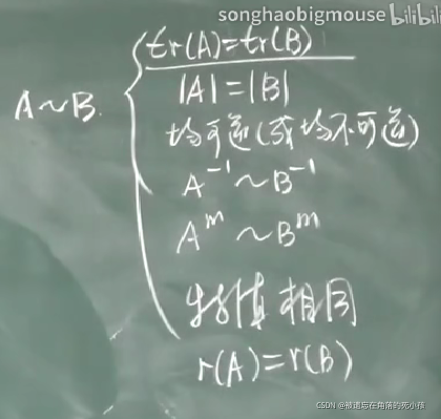 songhaobigmouse bilibili
tr(A)=tr(B)
|A|=|B|
A~B.
均可逆(或均不可逆)
A⁻¹~B⁻¹
Aᵐ~Bᵐ
特征值相同
r(A)=r(B)
CSDN @被遗忘在角落的死小孩